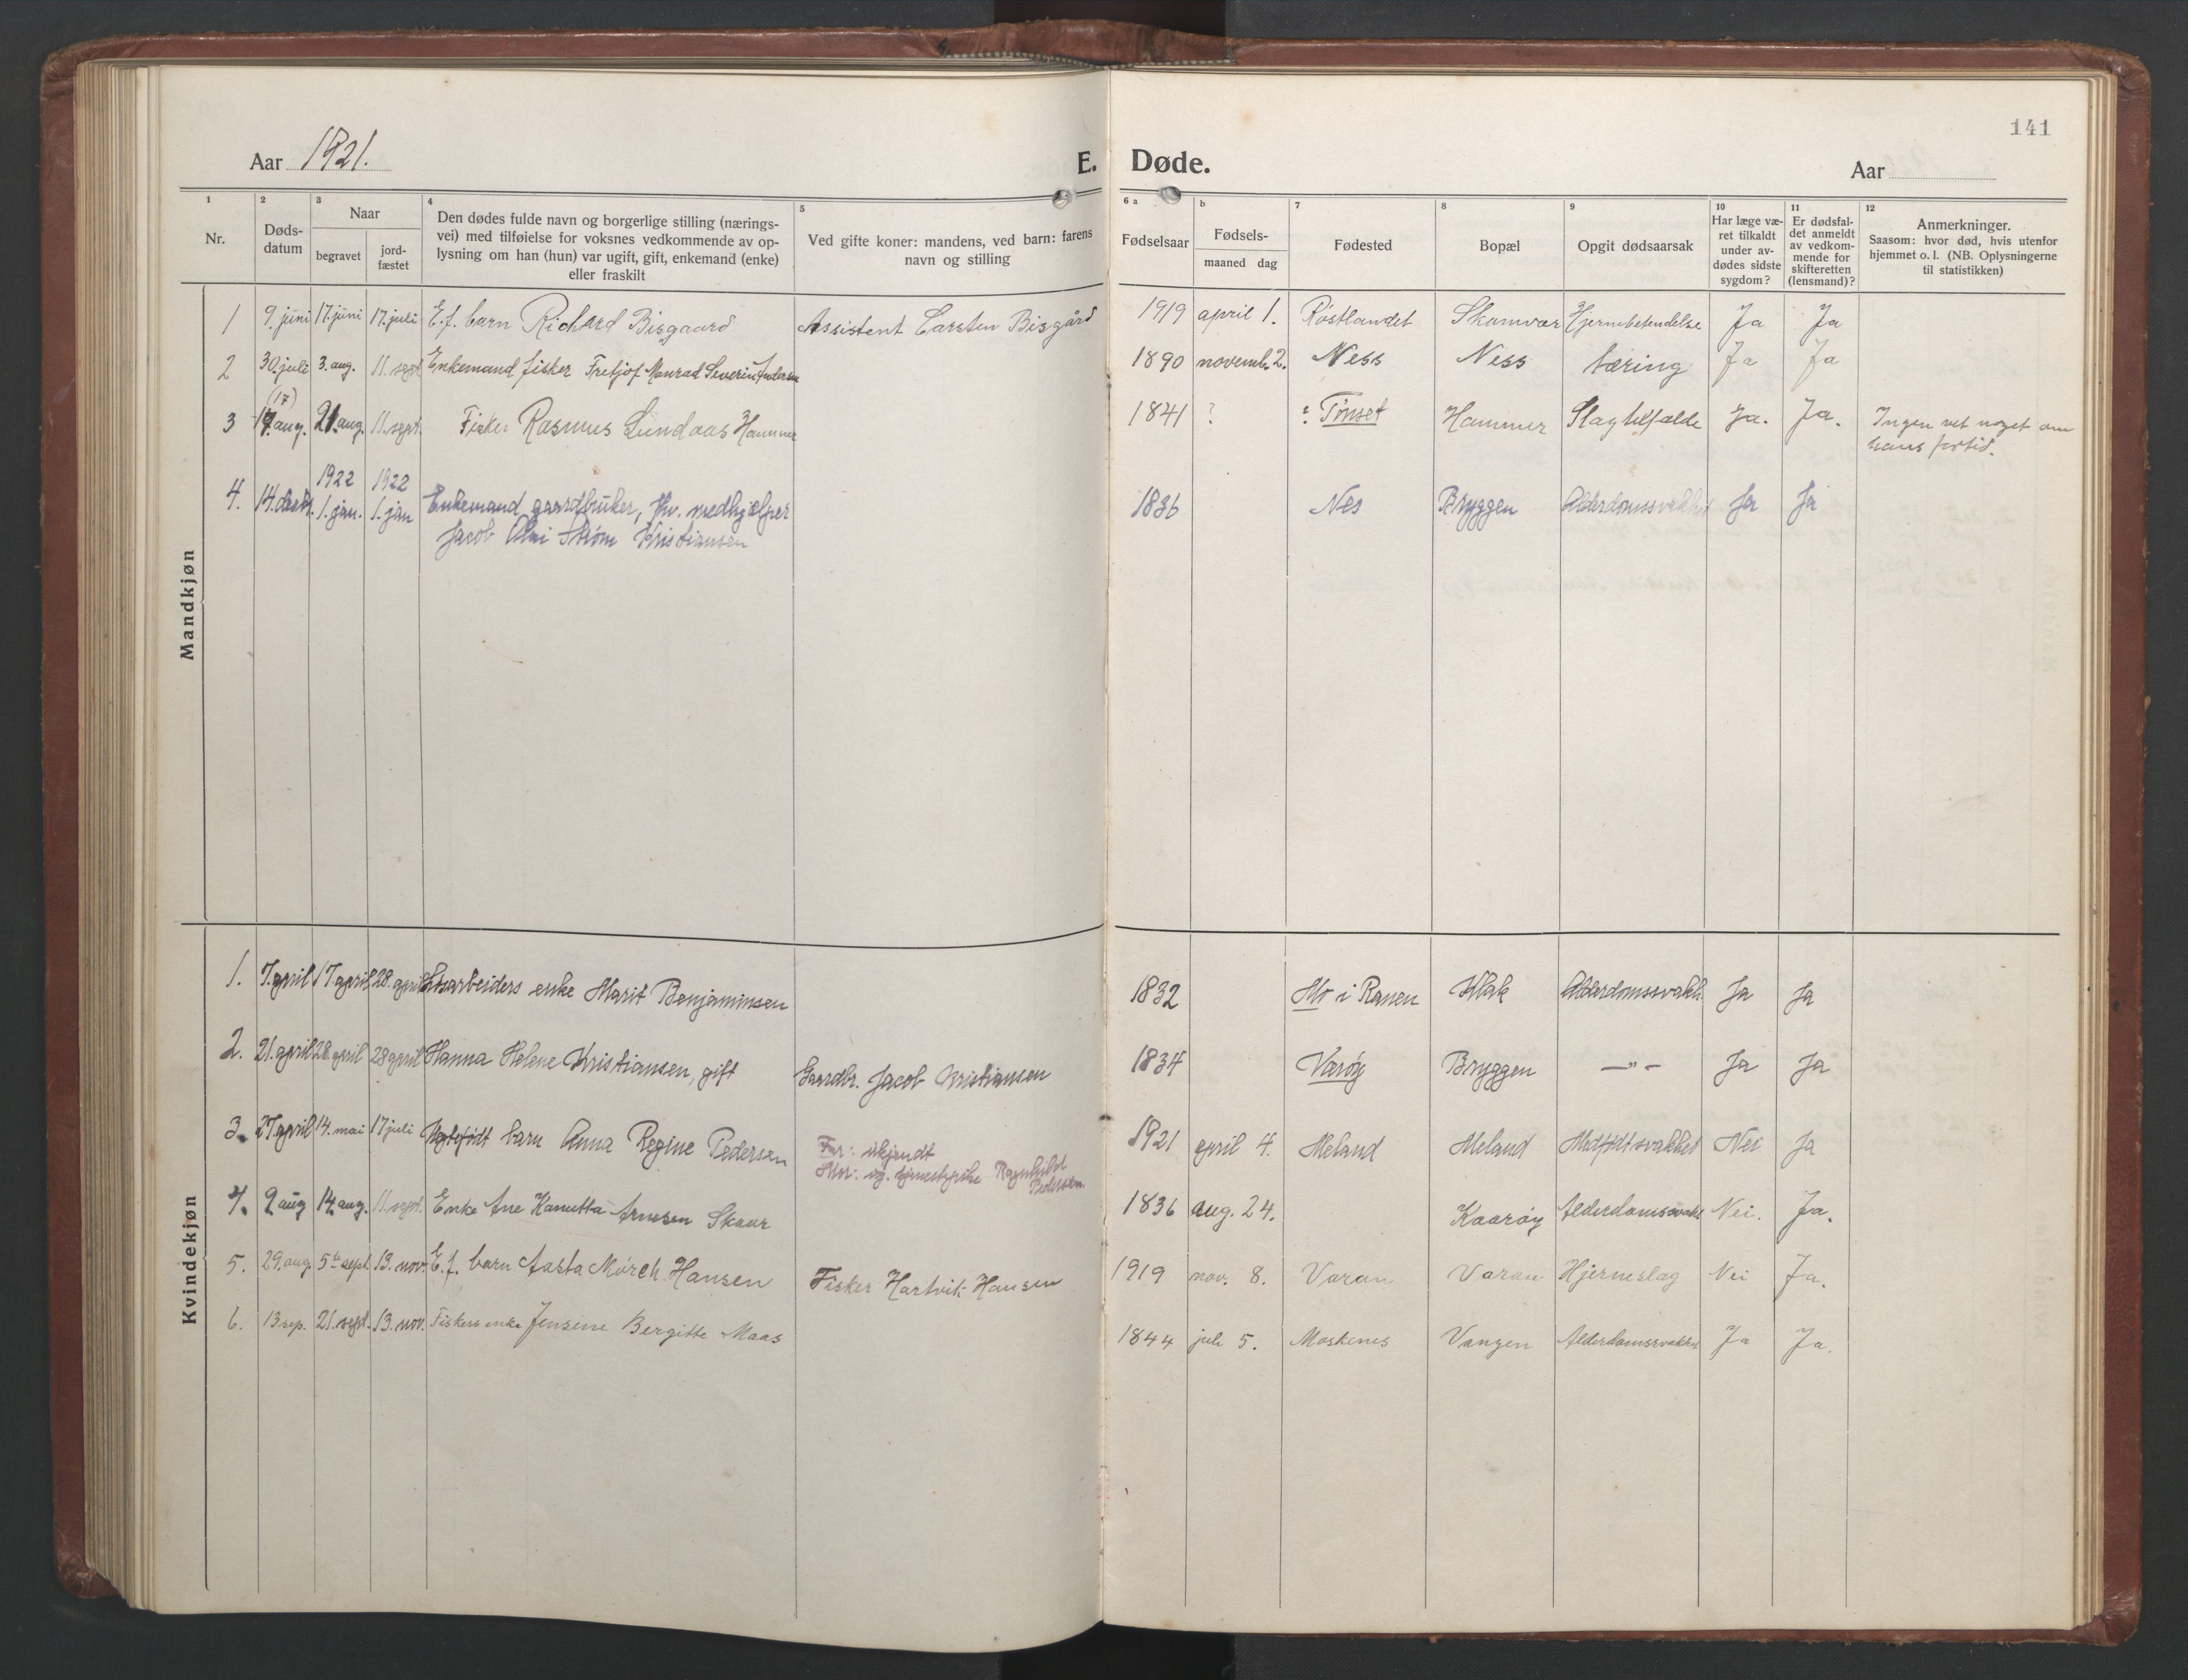 Aar 1921.
E. Døde.
Aar
141
1 2 3 4 5 6 a b 7 8 9 10 11 12
Nr.
Døds-
datum
Naar
begravet
jord-
fæstet
Den dødes fulde navn og borgerlige stilling (nærings-
vei) med tilføielse for voksnes vedkommende av op-
lysning om han (hun) var ugift, gift, enkemand (enke)
eller fraskilt
Ved gifte koner: mandens, ved barn: farens
navn og stilling
Fødselsaar
Fødsels-
maaned dag
Fødested
Bopæl
Opgit dødsaarsak
Har læge væ-
ret tilkaldt
under av-
dødes sidste
sygdom?
Er dødsfal-
det anmeldt
av vedkom-
mende for
skifteretten
(lensmand)?
Anmerkninger.
Saasom: hvor død, hvis utenfor
hjemmet o. l. (NB. Oplysningerne
til statistikken)
Mandkjøn
1 9. juni 17. juni 17. juli E. f. barn Richard Bisgaard Assistent Carsten Bisgård 1919 april 1. Røstlandet Skomvær Hjernebetendelse Ja Ja
2 30. juli 3. aug. 11. sept. Enkemand fisker Fretjof Monrad Severin Andersen 1890 novemb. 2. Ness Ness tæring Ja Ja
(17)
3 aug. 21. aug. 11. sept. Fisker Rasmus Lundaas Hammer 1841 ? ? Tønset Hammer Slagtilfælde Ja. Ja. Ingen vet noget om
hans fortid.
1922 1922
4. 14. 1. jan. 1. jan Enkemand gaardbruker, fhv. medhjælper 1836 Nes Bryggen Alderdomssvakhet Ja Ja
Jacob Olai Strøm Kristiansen
Kvindekjøn
1. 7. april 17. april 28. april enke Marit Benjaminsen 1832 Mo i Ranen Klak Alderdomssvakh. Ja Ja
2. 21. april 28. april 28 april Hanna Helene Kristiansen, gift Gaardbr. Jacob Kristiansen 1834 Værøy Bryggen —"— Ja Ja
3. 27 april 14. mai 17 juli Uegtefødt barn Anna Regine Pedersen Far: ukjendt 1921 april 4. Meland Meland Medfødt svakhet Nei Ja
Mor: ug. tjenestepike Ragnhild
Pedersen.
4. 9. aug 14. aug. 11. sept. Enke Ane Kanutta Arnesen Skaar 1836 aug. 24. Kaarøy Alderdomssvakh Nei. Ja.
5. 29. aug. 5te sept. 13. nov. E. f. barn Aasta Mørch Hansen Fisker Hartvik Hansen 1919 nov. 8. Varan Varan Hjerneslag Nei Ja.
6. 13 sep. 21. sept. 13. nov. Fiskers enke Jensine Bergitte Maas 1844 juli 5. Moskenes Vangen Alderdomssvakhet Ja Ja.